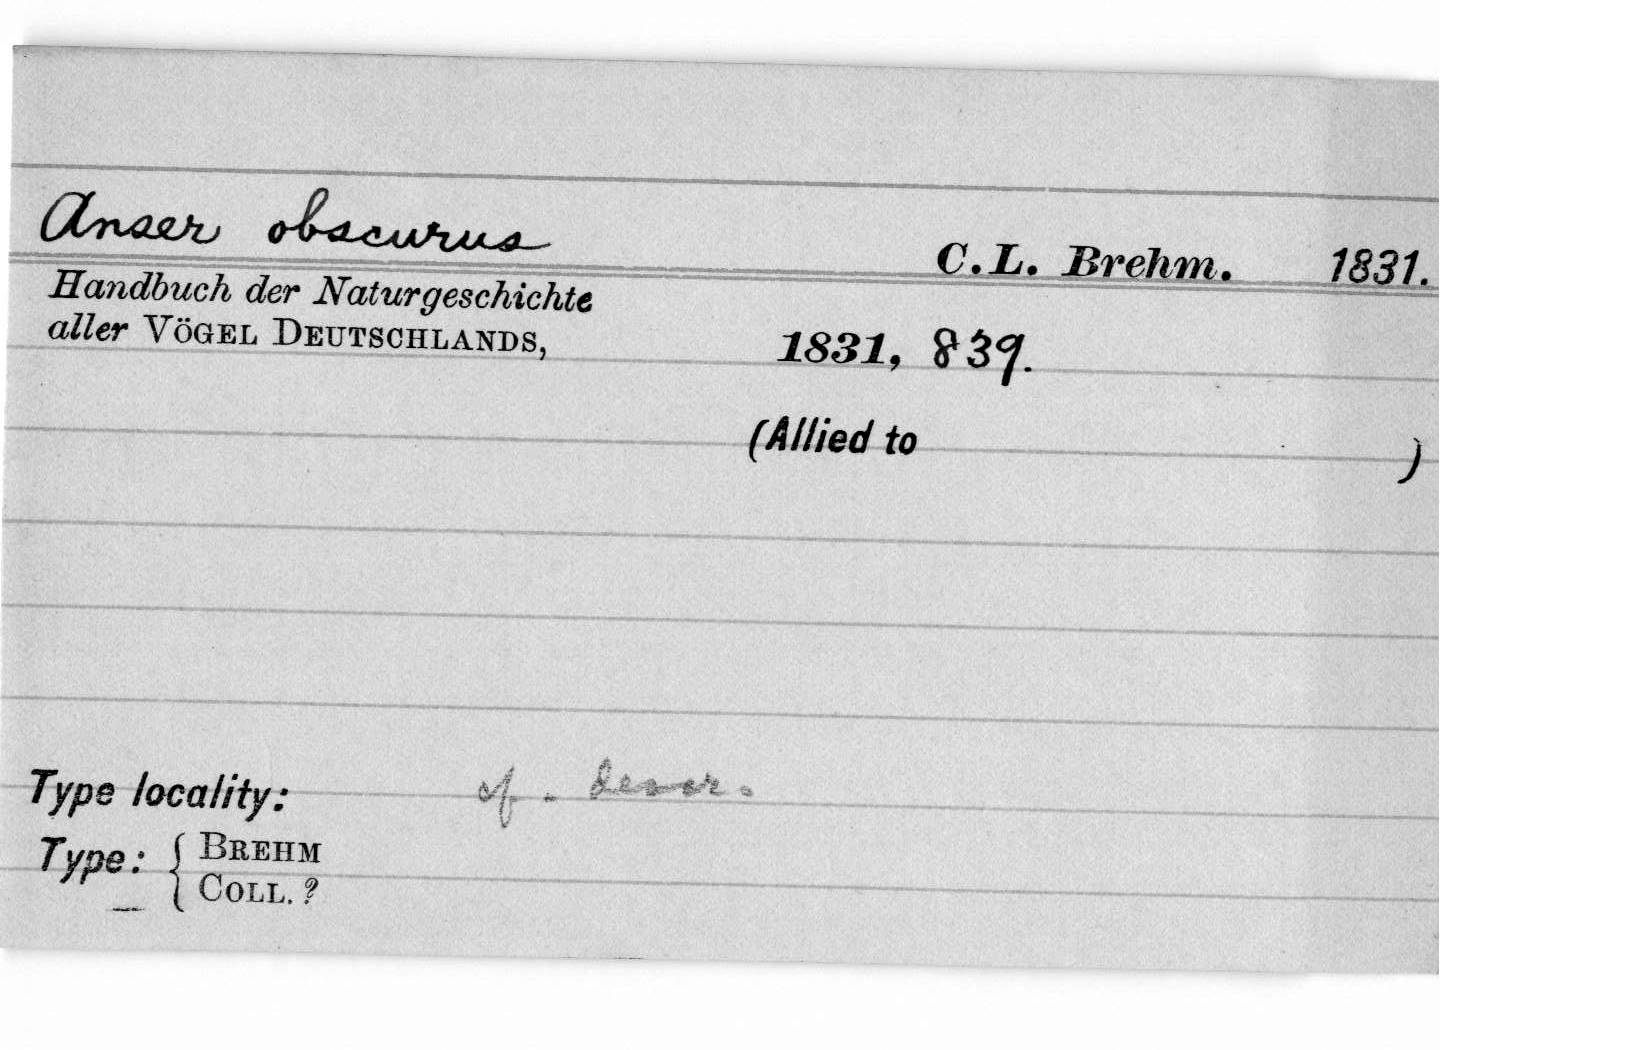 Anser obscurus C. L. Brehm. 1831.
Handbuch der Naturgeschichte
aller VÖGEL DEUTSCHLANDS, 1831, 839.
(Allied to )
Type locality: cf. descr.
Type: { BREHM
COLL. ?